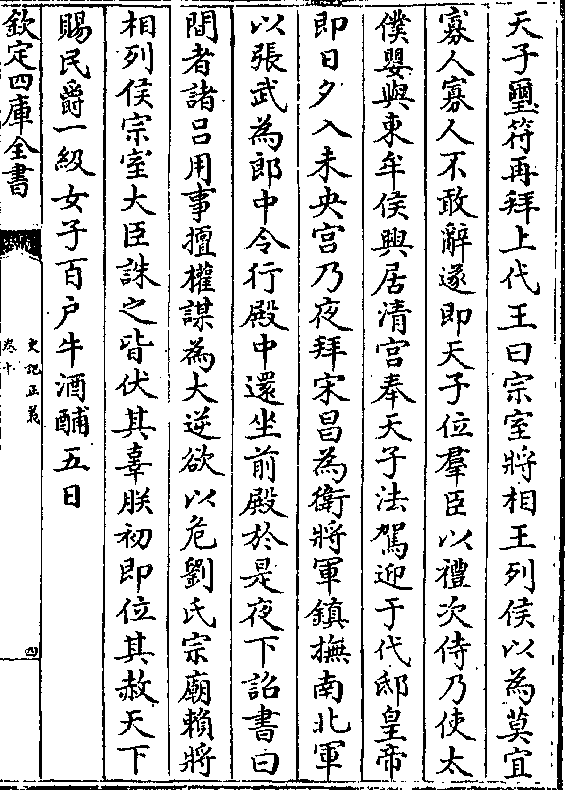 天子璽符再拜上代王曰宗室將相王列侯以為莫宜
寡人寡人不敢辭遂即天子位羣臣以禮次侍乃使太
僕嬰與東牟侯興居清宮奉天子法駕迎于代邸皇帝
即日夕入未央宫乃夜拜宋昌為衛將軍鎮撫南北軍
以張武為郎中令行殿中還坐前殿於是夜下詔書曰
間者諸吕用事擅權謀為大逆欲以危劉氏宗廟賴將
相列侯宗室大臣誅之皆伏其辜朕初即位其赦天下
賜民爵一級女子百户牛酒酺五日
欽定四庫全書
史記正義
卷十
四